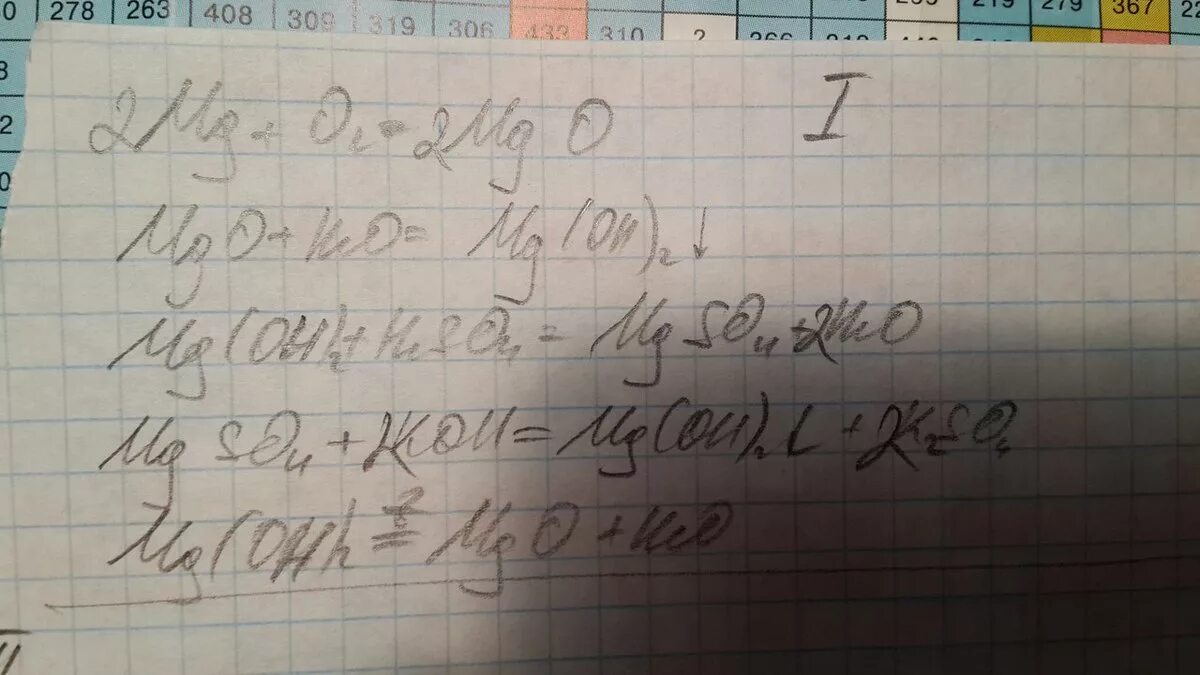 0 278 263 408 309 319 306 433 310 ? 266 219 279 367 22
8
2
0
I
2Mg + O₂ = 2MgO
MgO + H₂O = Mg(OH)₂↓
Mg(OH)₂ + H₂SO₄ = MgSO₄ + 2H₂O
MgSO₄ + 2KOH = Mg(OH)₂↓ + 2K₂SO₄
Mg(OH)₂ = MgO + H₂O